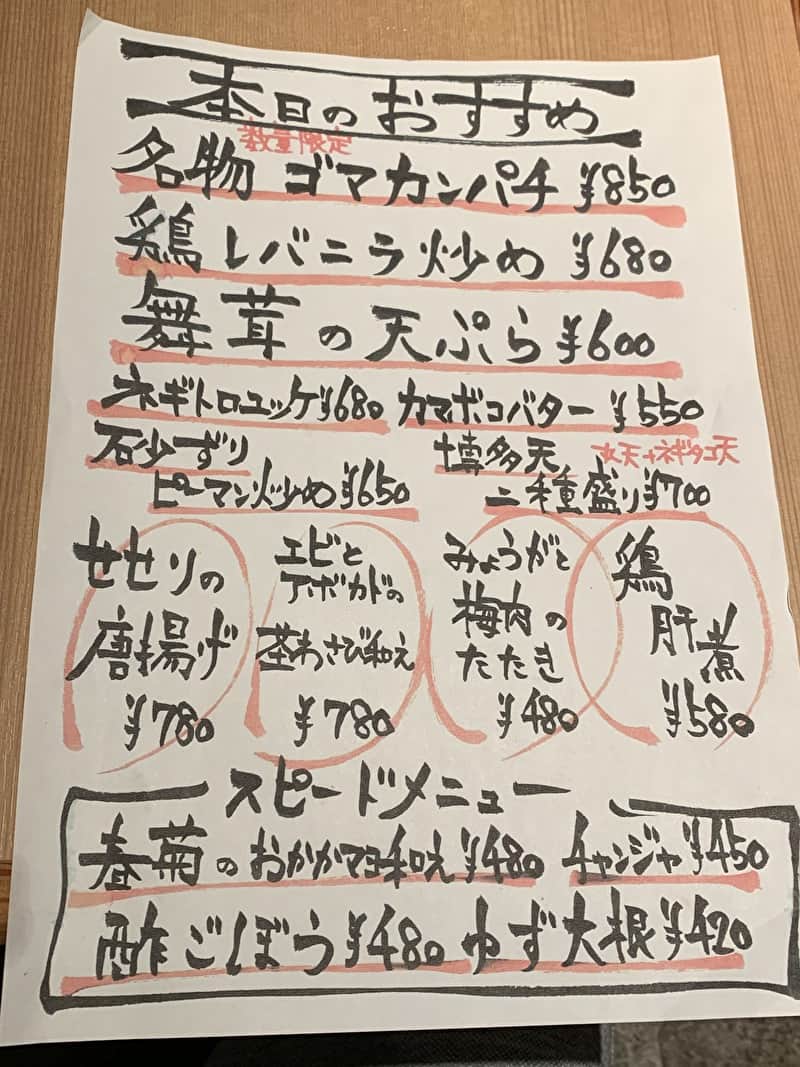 本日のおすすめ
数量限定
名物 ゴマカンパチ ¥850
鶏レバニラ炒め ¥680
舞茸の天ぷら ¥600
ネギトロユッケ ¥680 カマボコバター ¥550
石少ずり
ピーマン炒め ¥650
博多天 丸天+ネギタコ天
二種盛り ¥700
せせりの
唐揚げ
¥780
エビと
アボカドの
茎わさび和え
¥780
みょうがと
梅肉の
たたき
¥480
鶏
肝
煮
¥580
スピードメニュー
春菊のおかかマヨ和え ¥480 チャンジャ ¥450
酢ごぼう ¥480 ゆず大根 ¥420